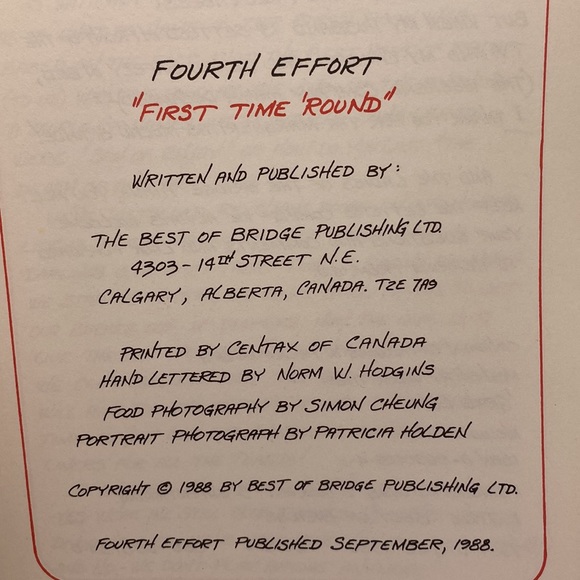 FOURTH EFFORT
"FIRST TIME 'ROUND"
WRITTEN AND PUBLISHED BY:
THE BEST OF BRIDGE PUBLISHING LTD.
4303-14TH STREET N.E.
CALGARY, ALBERTA, CANADA. T2E 7A9
PRINTED BY CENTAX OF CANADA
HAND LETTERED BY NORM W. HODGINS
FOOD PHOTOGRAPHY BY SIMON CHEUNG
PORTRAIT PHOTOGRAPH BY PATRICIA HOLDEN
COPYRIGHT © 1988 BY BEST OF BRIDGE PUBLISHING LTD.
FOURTH EFFORT PUBLISHED SEPTEMBER, 1988.